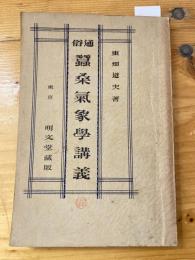 東畑道夫著
通俗
蠶桑氣象學講義
東京
明文堂藏版